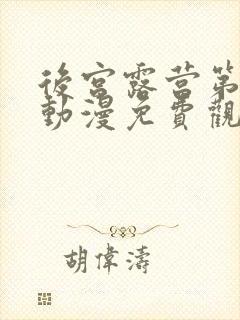 後宮露營第
動漫免費觀
胡偉濤